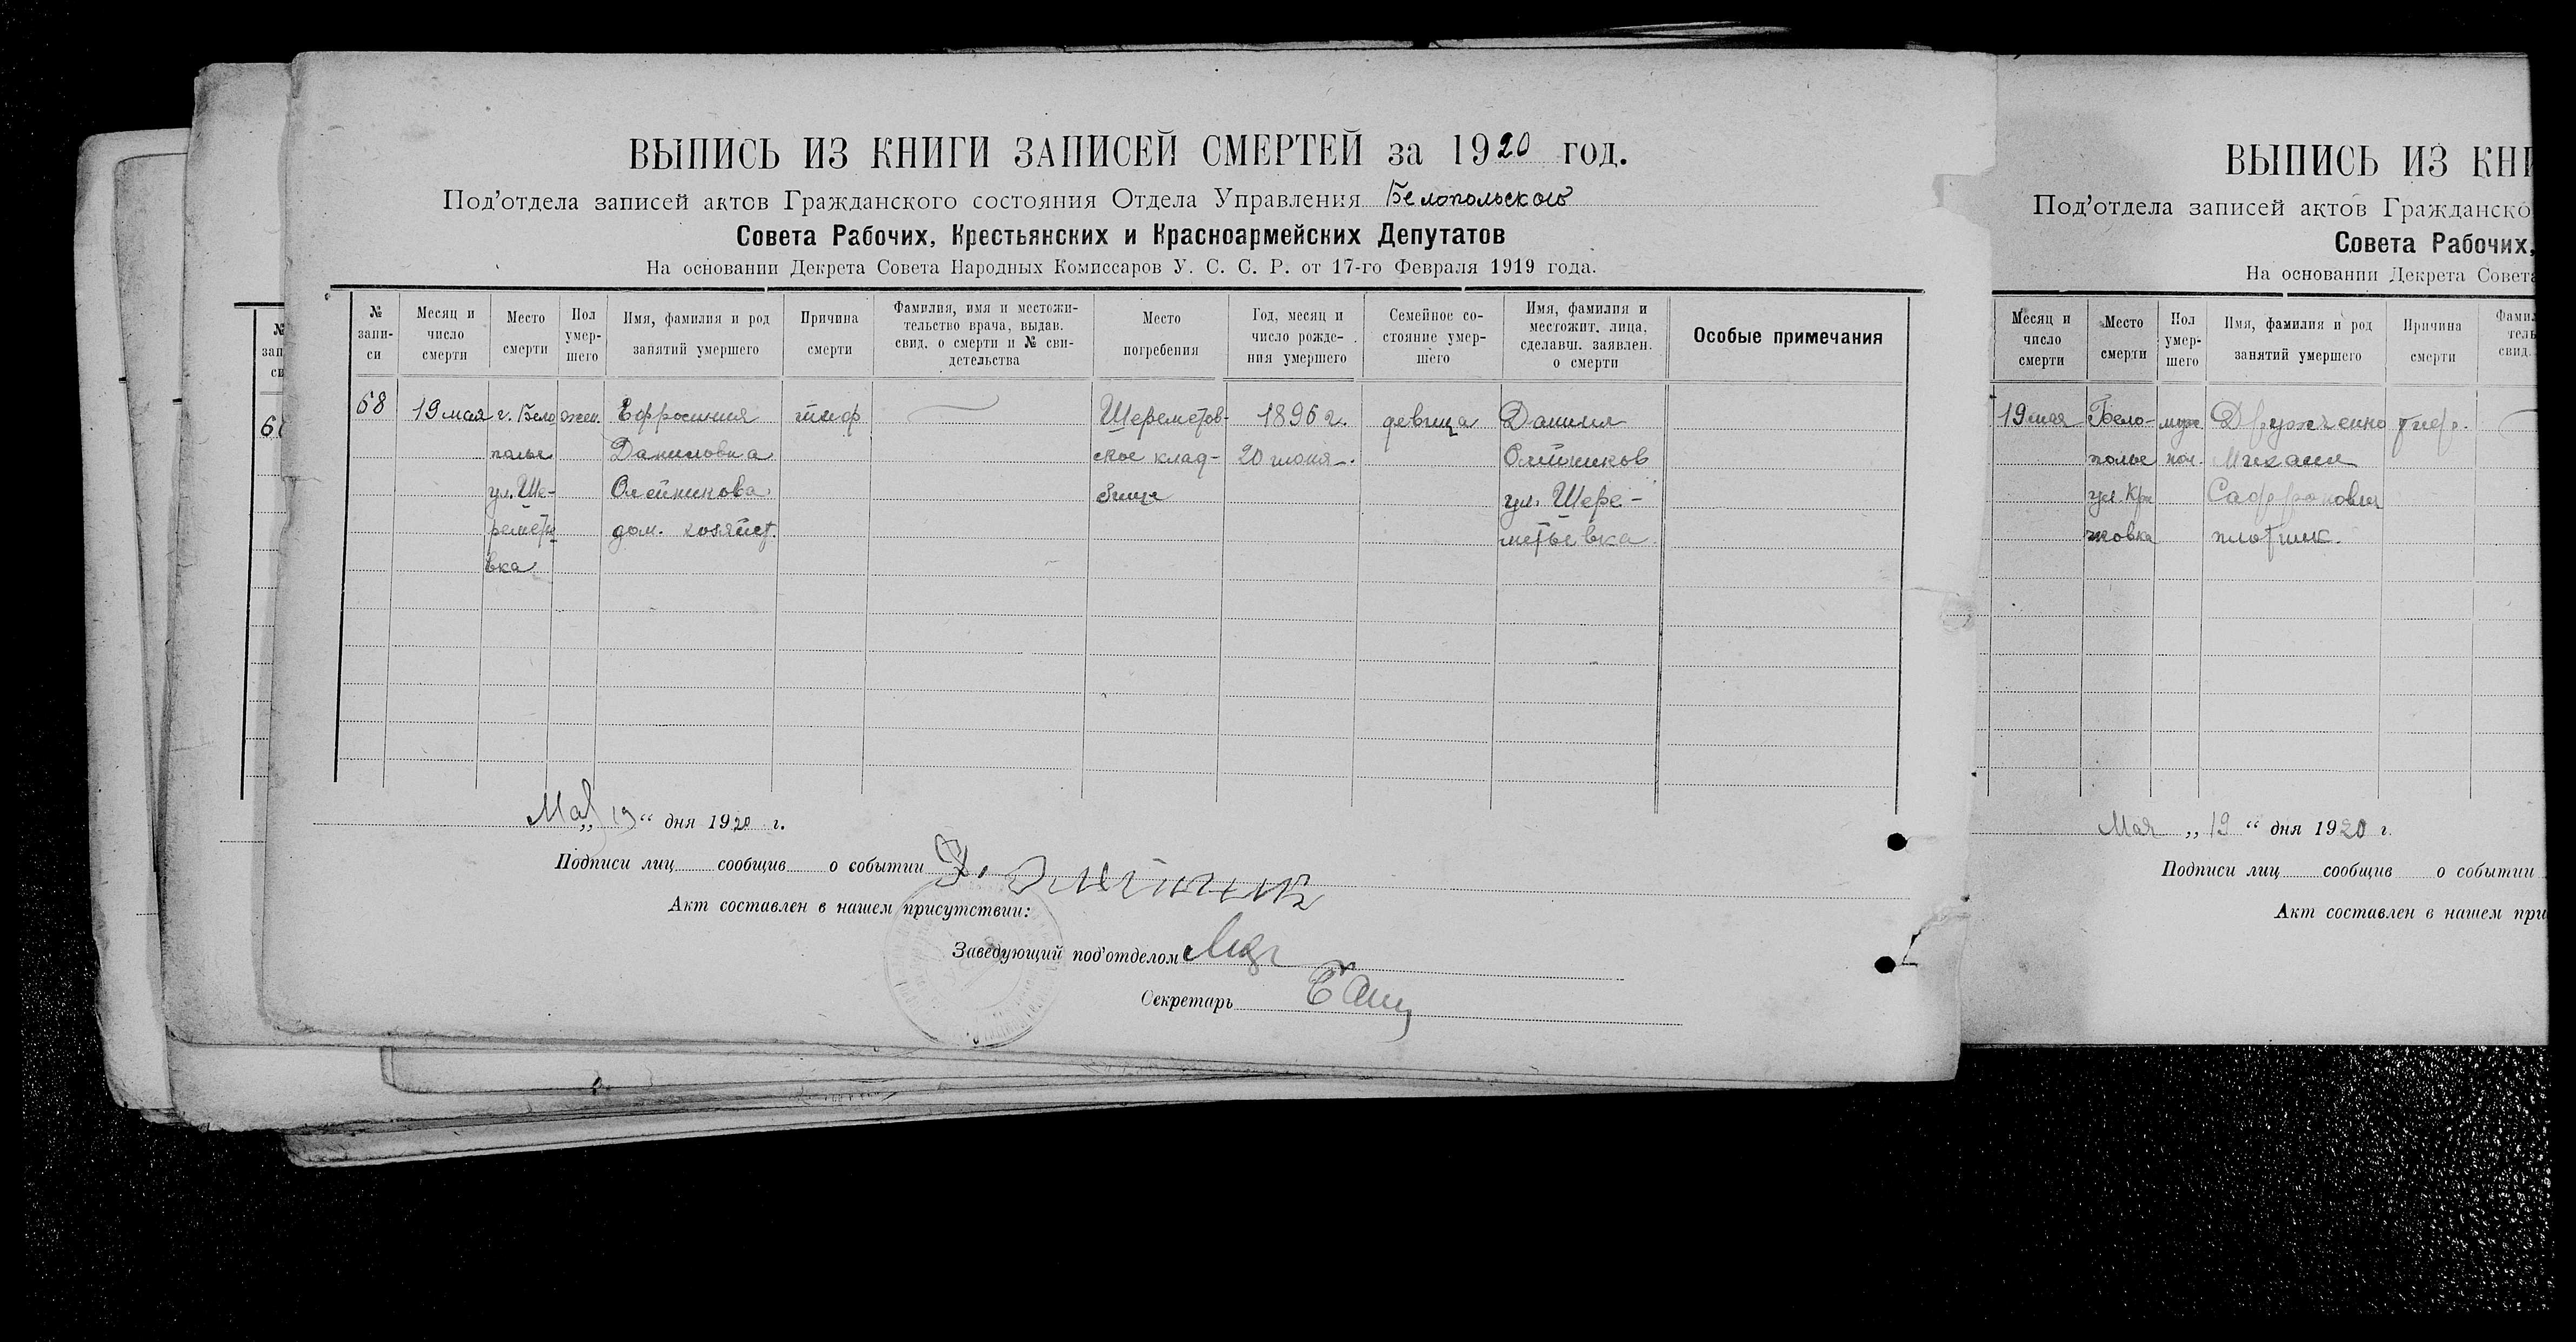 ВЫПИСЬ ИЗ КНИГИ ЗАПИСЕЙ СМЕРТЕЙ за 1920 год.
Под’отдела записей актов Гражданского состояния Отдела Управления Белопольского
Совета Рабочих, Крестьянских и Красноармейских Депутатов
На основании Декрета Совета Народных Комиссаров У. С. С. Р. от 17-го Февраля 1919 года.
№ запи-
си
Месяц и
число
смерти
Место
смерти
Пол
умер-
шего
Имя, фамилия и род
занятий умершего
Причина
смерти
Фамилия, имя и местожи-
тельство врача, выдав.
свид. о смерти и № сви-
детельства
Место
погребения
Год, месяц и
число рожде-
ния умершего
Семейное со-
стояние умер-
шего
Имя, фамилия и
местожит. лица,
сделавш. заявлен.
о смерти
Особые примечания
68
19 мая
г. Бело
полье
ул. Ше-
реметье
вка
жен.
Ефросиния
Даниловна
Олейникова
дом. хозяйст.
тиф
Шереметов-
ское клад-
бище
1896 г.
20 июня.
девица
Даниил
Олейников
ул. Шере-
метьевка
Мая „ 19 “ дня 1920 г.
Подписи лиц сообщив о событии
Акт составлен в нашем присутствии:
Заведующий под’отделом
Секретарь
ВЫПИСЬ ИЗ КНИ
Под’отдела записей актов Гражданско
Совета Рабочих,
На основании Декрета Совета
Месяц и
число
смерти
Место
смерти
Пол
умер-
шего
Имя, фамилия и род
занятий умершего
Причина
смерти
Фамил
тель
свид.
19 мая
Бело-
полье
ул. Кры
жовка
муж
пол.
Дружченко
Михаил
Сафронович
плотник.
тиф.
Мая „ 19 “ дня 1920 г.
Подписи лиц сообщив о событии
Акт составлен в нашем при